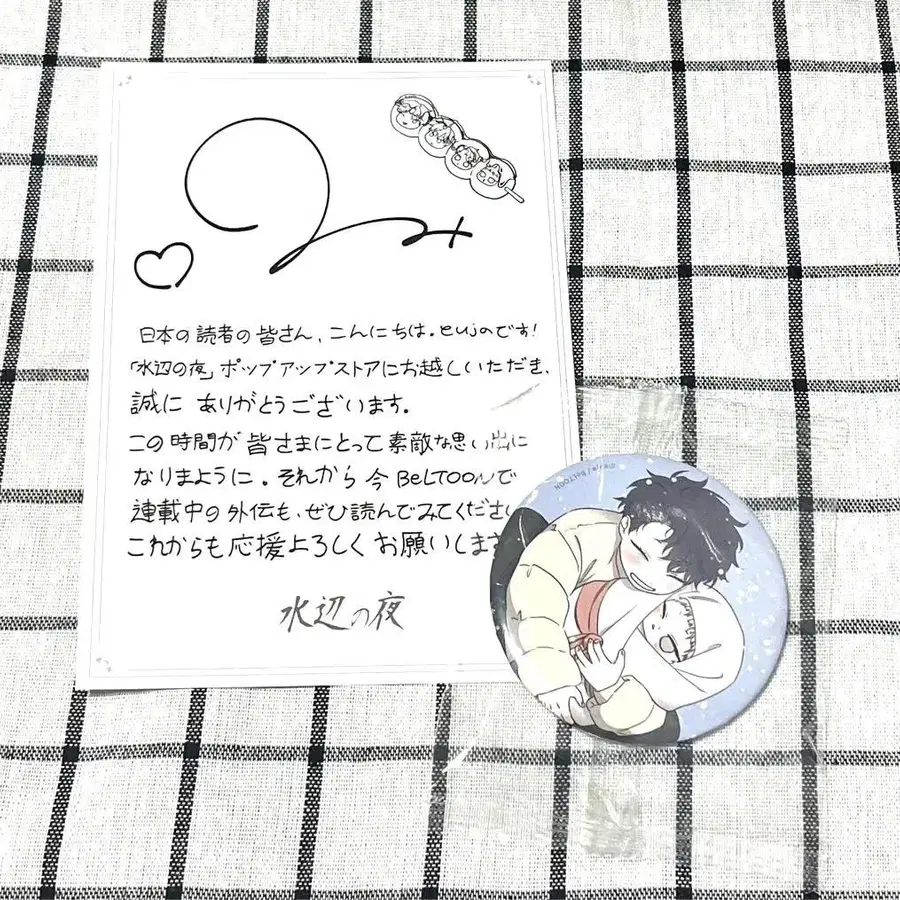 日本の読者の皆さん、こんにちは。eujaです!
「水辺の夜」ポップアップストアにお越しいただき、
誠に ありがとうございます。
この時間が 皆さまにとって 素敵な思い出に
なりまように。それから 今 BeLTOONで
連載中の外伝も、ぜひ読んでみてくださ
これからも 応援よろしく お願いします
水辺の夜
BeLTOON